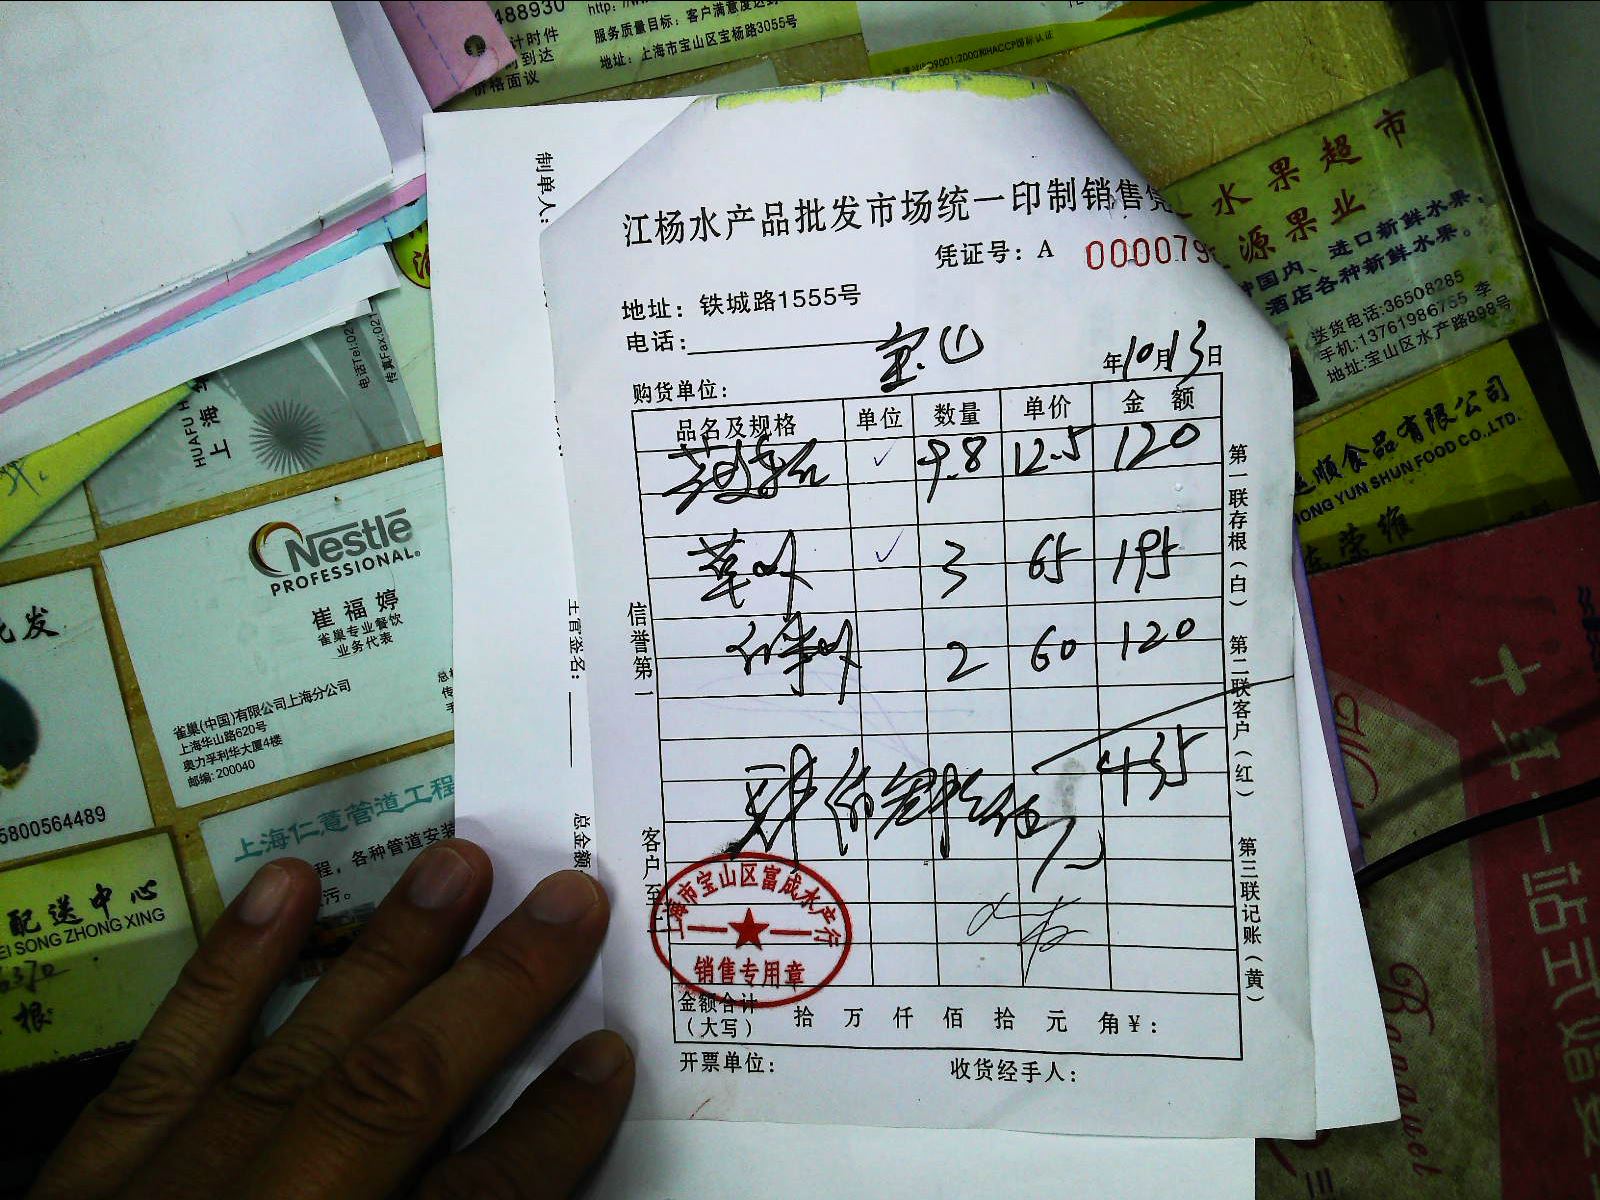 488930
http:
服务质量目标：客户满意度达到
地址：上海市宝山区宝杨路3055号
计时件
到达
价格面议
9001:2000和HACCP国际认证
制单人：
江杨水产品批发市场统一印制销售凭
凭证号：A 000079
地址：铁城路1555号
电话：
宝山
年10月13日
购货单位：
品名及规格 单位 数量 单价 金额
✓ 9.8 12.5 120
草虾 ✓ 3 65 195
虾 2 60 120
435
肆佰叁拾伍元
信誉第一
客户至上
第一联存根（白） 第二联客户（红） 第三联记账（黄）
上海市宝山区富成水产行
销售专用章
金额合计（大写） 拾 万 仟 佰 拾 元 角 ¥：
开票单位： 收货经手人：
主管签名：
总金额：
水果超市
源果业
国内、进口新鲜水果，
酒店各种新鲜水果。
送货电话:36508285
手机:13761986755 李
地址:宝山区水产路898号
顺食品有限公司
HONG YUN SHUN FOOD CO.,LTD.
荣维
一站式婚
Banquet
电话Tel:02
传真Fax:021
HUAFU H
上海
Nestlé
PROFESSIONAL.
崔福婷
雀巢专业餐饮
业务代表
雀巢(中国)有限公司上海分公司
上海华山路620号
奥力孚利华大厦4楼
邮编: 200040
批发
5800564489
上海仁薏管道工程
程，各种管道安装
污。
配送中心
EI SONG ZHONG XING
根